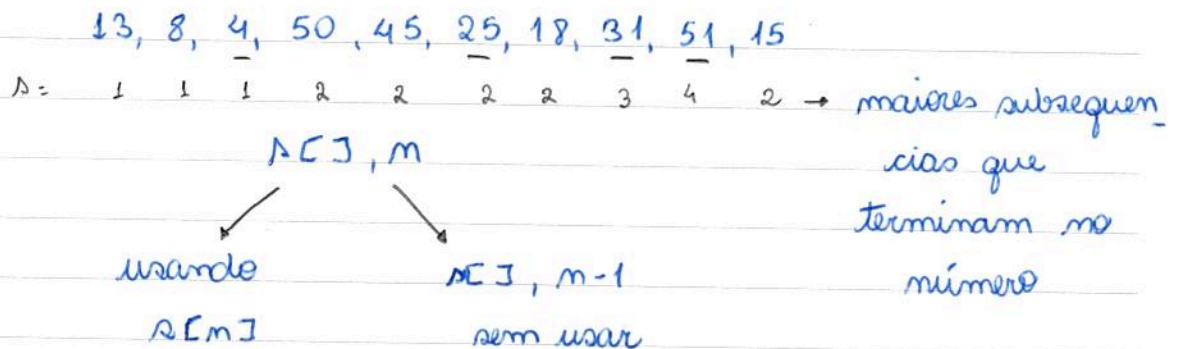 13, 8, 4, 50, 45, 25, 18, 31, 51, 15
s= 1 1 1 2 2 2 2 3 4 2 → maiores subsequen_
s[], n cias que
terminam no
usando s[], n-1 número
s[n] sem usar